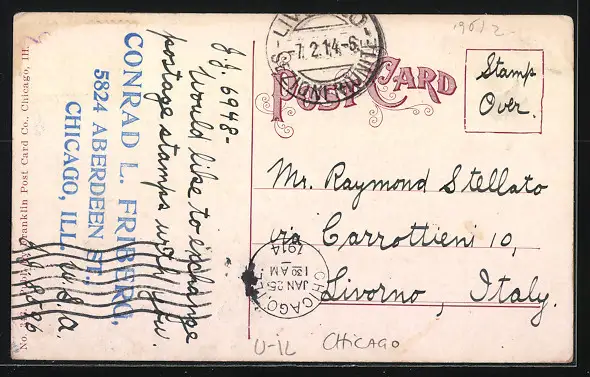 1912
LIVORNO
7.2.14.-6
POST CARD
Stamp
Over.
J.J. 6948-
Would like to exchange
postage stamps with you.
CONRAD L. FRIBERG,
5824 ABERDEEN ST.,
CHICAGO, ILL.
U.S.A.
8896
Franklin Post Card Co., Chicago, Ill.
Mr. Raymond Stellato
via Carrottieni 10,
Livorno, Italy.
CHICAGO,
JAN 25
130 AM
1914
U-IL
CHICAGO